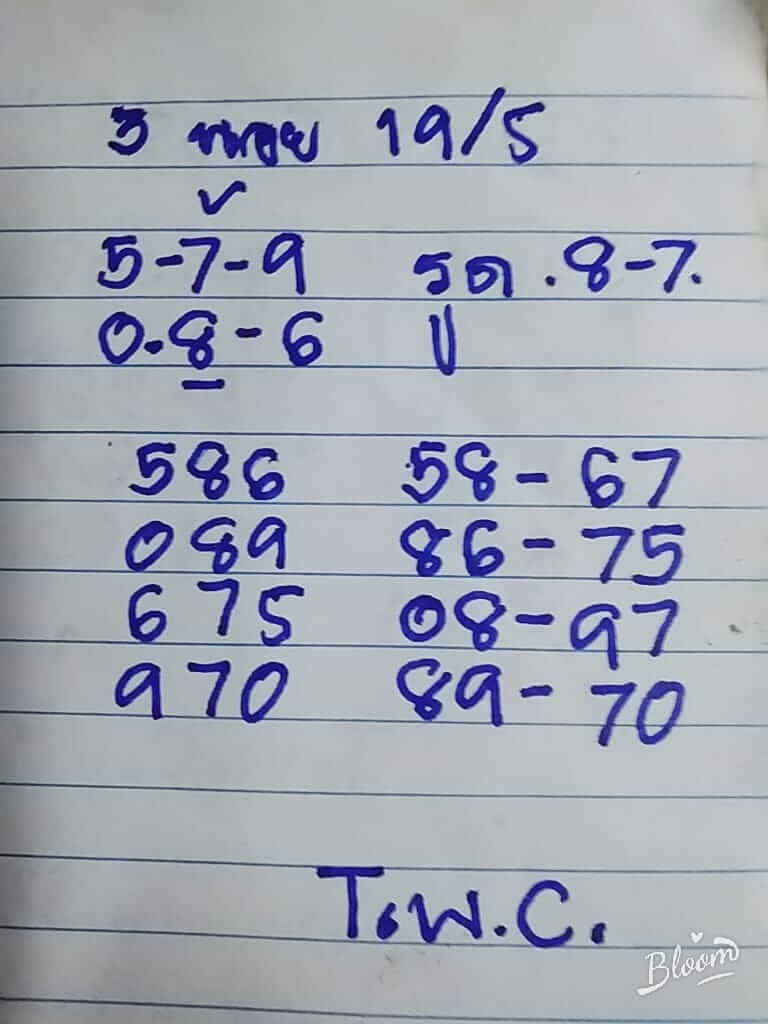 3 หนอย 19/5
5-7-9 รด .8-7.
0.8-6 ป
586 58-67
089 86-75
675 08-97
970 89-70
T.พ.C.
Bloom